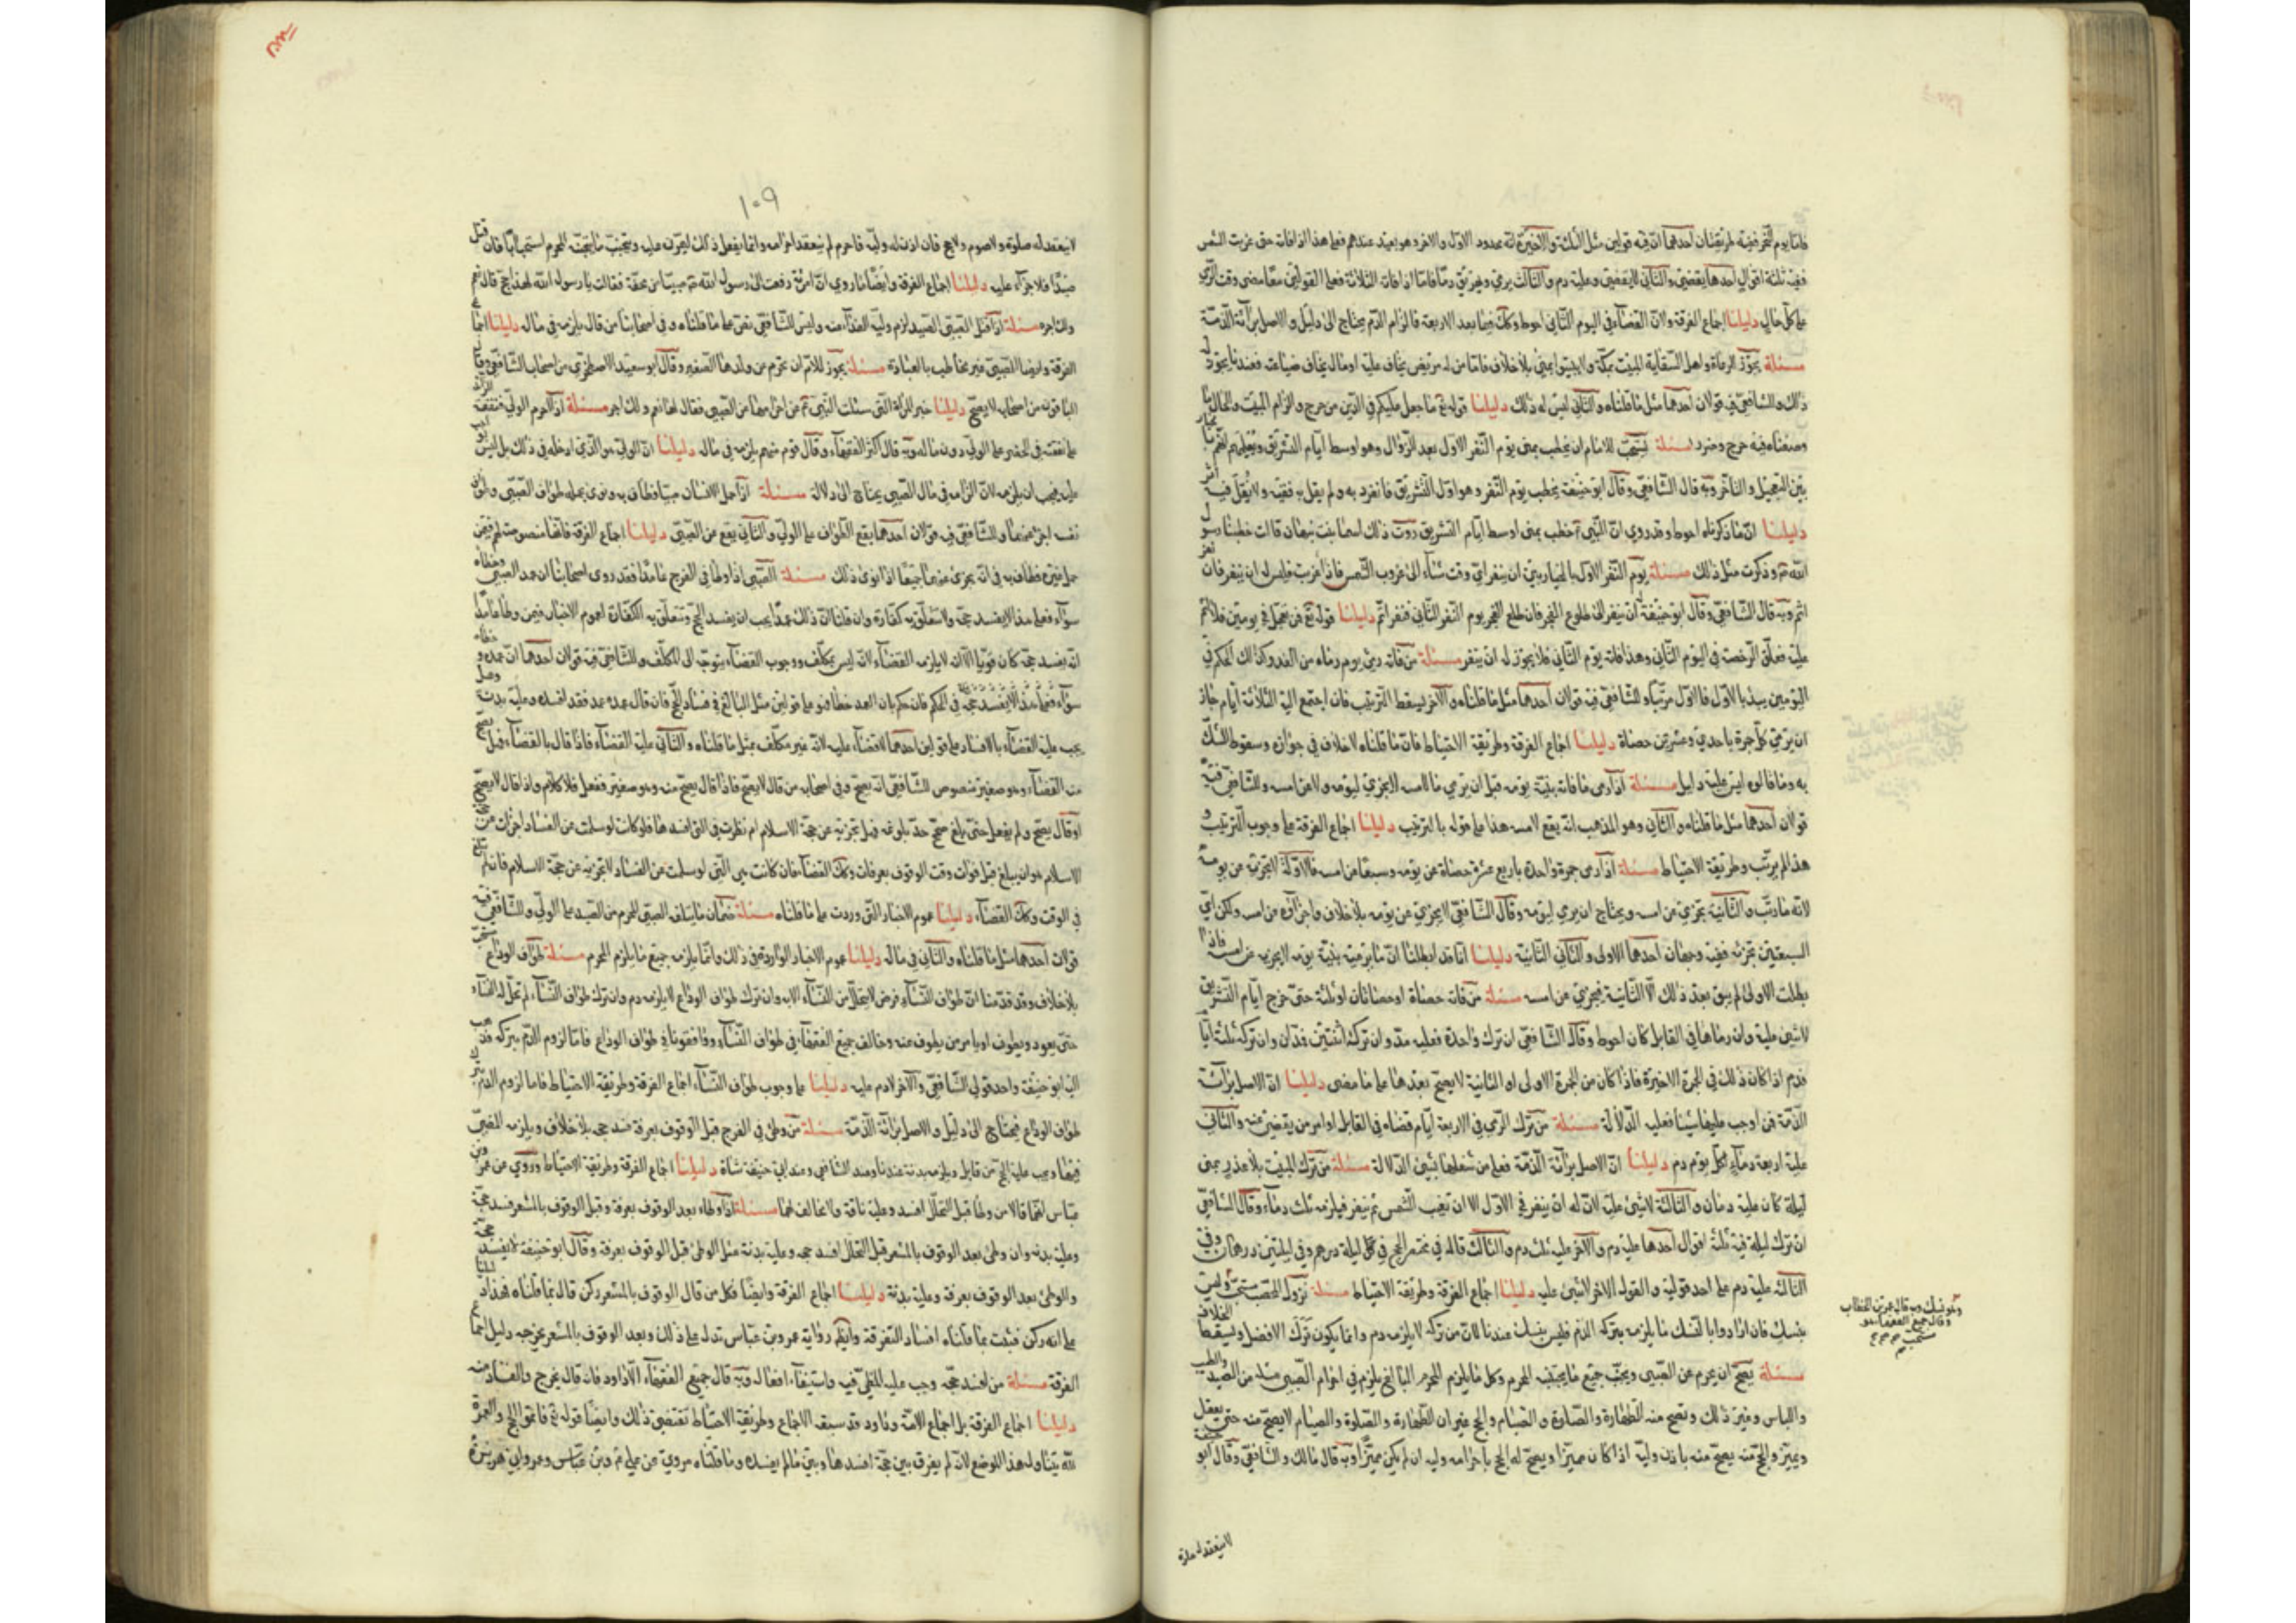 فامّا يوم النّحر ففيه طريقتان أحدهما انّ فيه قولين مثل الثلثة والاخير انّه محدود الاوّل والاخر وهو بعيد عندهم فعلى هذا اذا فات حتى غربت الشمس
ففيه ثلثة اقوال احدها يقضي والثاني لا يقضي وعليه دم والثالث يرمي ويهريق دما فاما اذا فات الثلاثة فعلى القولين معا مضى وقت الرّمي
على كلّ حال دليلنا اجماع الفرقة ولانّ القضاء في اليوم الثاني احوط وكك فيما بعد الاربعة فالزام الدّم يحتاج الى دليل والاصل براءة الذّمة
مسئلة يجوز لرعاة واهل السّقاية المبيت بمكّة ولا يبيتوا بمنى بلا خلاف فامّا من له مريض يخاف عليه او مال يخاف ضياعه فعندنا يجوز له
ذلك وللشافعي فيه قولان احدهما مثل ما قلناه والثاني ليس له ذلك دليلنا قوله تع ما جعل عليكم في الدّين من حرج والزام المبيت والحال ما
وصفناه فيه حرج وضرر مسئلة يستحبّ للامام ان يخطب بمنى يوم النّفر الاوّل بعد الزّوال وهو اوسط ايّام التّشريق ويعلمهم انّهم بالخيار
بين التعجيل والتاخر وبه قال الشّافعي وقال ابو حنيفة يخطب يوم النّفر وهو اوّل التّشريق فانفرد به ولم يقل به فقيه ولا نقل فيه اثر
دليلنا انّ ما ذكرناه احوط وقد روي انّ النّبي ص خطب بمنى اوسط ايّام التّشريق روت ذلك اسما بنت نبهان قالت خطبنا رسول
الله ص وذكرت مثل ذلك مسئلة يوم النّفر الاوّل بالخيار بين ان ينفر ايّ وقت شاء الى غروب الشّمس فاذا غربت فليس له ان ينفر فان نفر
اثم وبه قال الشّافعي وقال ابو حنيفة له ان ينفر الى طلوع الفجر فان طلع الفجر يوم النّفر الثّاني فنفر اثم دليلنا قوله تع فمن تعجل في يومين فلا اثم
عليه فعلّق الرّخصة في اليوم الثّاني وهذا فاته يوم الثّاني فلا يجوز له ان ينفر مسئلة من فاته رمي يوم رماه من الغد وكذلك الحكم في
اليومين يبدا بالاوّل فالاوّل مرتّبا وللشّافعي فيه قولان احدهما مثل ما قلناه والاخر يسقط الترتيب فان اجتمع اليه الثلاثة ايّام جاز
ان يرمي كل جمرة باحدي وعشرين حصاة دليلنا اجماع الفرقة وطريقة الاحتياط فانّ ما قلناه لا خلاف في جوازه وسقوط النّسك
به وما قالوه ليس عليه دليل مسئلة اذا رمى ما فاته بنيّة يومه قبل ان يرمي ما لامسه لا يجزي ليومه ولا عن امسه وللشّافعي فيه
قولان احدهما مثل ما قلناه والثّاني وهو المذهب انّه يقع لامسه هذا على قوله بالترتيب دليلنا اجماع الفرقة على وجوب الترتيب و
هذا لم يرتّب وطريقة الاحتياط مسئلة اذا رمى جمرة واحدة باربع عشرة حصاة سبعا عن يومه وسبعا عن امسه فالاولة لا تجزي عن يومه
لانّه ما رتّب والثّانية تجزي عن امسه ويحتاج ان يرمي ليومه وقال الشّافعي لا يجزي عن يومه بلا خلاف واجزاه عن امسه ولكن ايّ
السبعتين تجزيه ففيه وجهان احدهما الاولى والثّاني الثّانية دليلنا انّا قد ابطلنا انّ ما يرميه بنيّة يومه لا يجزيه عن امسه فاذا
بطلت الاولى لم يبق بعد ذلك الّا الثّانية فيجزي عن امسه مسئلة من فاته حصاة او حصاتان او ثلثة حتى خرج ايّام التّشريق
لا شي عليه وان رماها في القابل كان احوط وقال الشّافعي ان ترك واحدة فعليه مدّ وان ترك اثنتين فمدّان وان ترك ثلثة ايّام
فدم اذا كان ذلك في الجمرة الاخيرة فاذا كان من الجمرة الاولى او الثّانية لا يصحّ بعدها على ما مضى دليلنا انّ الاصل براءة
الذّمّة فمن اوجب عليها شيئا فعليه الدّلالة مسئلة من ترك الرّمي في الاربعة ايّام قضاه في القابل او امر من يقضي عنه والثّاني
عليه اربعة دماء لكلّ يوم دم دليلنا انّ الاصل براءة الذّمّة فعلى من شغلها بشي الدّلالة مسئلة من ترك المبيت بلا عذر بمنى
ليلة كان عليه دم والثالثة لا شي عليه لانّ له ان ينفر في الاوّل الا ان تغيب الشّمس ثم ينفر فيلزمه ثلث دماء وقال الشّافعي
ان ترك ليلة فيه ثلثة اقوال احدها عليه دم والاخر عليه ثلث دم والثالث قاله في مختصر الحج في كلّ ليلة درهم وفي ليلتين درهمان وفي
الثالثة عليه دم على احد قوليه والقول الاخر لا شي عليه دليلنا اجماع الفرقة وطريقة الاحتياط مسئلة نزول المحصب مستحبّ وليس
بنسك فان ارادوا بالنّسك ما يلزمه بتركه الدّم فليس بنسك عندنا لانّ من تركه لا يلزمه دم وانّما يكون ترك الافضل ويسقط الخلاف
مسئلة يصحّ ان يحرم عن الصّبي ويجنّب جميع ما يجتنبه المحرم وكل ما يلزم المحرم البالغ يلزم في احرام الصّبي مثله من الصّيد والطيب
واللباس وغير ذلك وتصح منه الطّهارة والصّلوة والصّيام والحج غير ان الطّهارة والصّلوة والصّيام لا يصحّ منه حتى يعقل
ويميّز والحجّ منه يصحّ منه باذن وليّه اذا كان مميّزا ويصحّ له الحج باحرامه وليه ان لم يكن مميّزا وبه قال مالك والشّافعي وقال ابو حنيفة
لا ينعقد له صلوة
۱۰۹
لا ينعقد له صلوة ولا صوم ولا حج فان اذن له وليّه فاحرم لم ينعقد احرامه وانّما يفعل ذلك ليمرّن عليه ويجنّب ما يجتنبه المحرم استحبابا فان قتل
صيدا فلا جزاء عليه دليلنا اجماع الفرقة وايضا ما روي انّ امراة رفعت الى رسول الله ص صبيّا من محفّة فقالت يا رسول الله الهذا حجّ قال نعم
ولك اجره مسئلة اذا قتل الصّبي الصّيد لزم وليّه الفداء عنه وليس للشّافعي نصّ على ما قلناه وفي اصحابنا من قال يلزمه في ماله دليلنا اجماع
الفرقة وايضا الصّبي غير مخاطب بالعبادة مسئلة يجوز للامّ ان تحرم عن ولدها الصّغير وقال ابو سعيد الاصطخري من اصحاب الشّافعي وقال
الباقون من اصحابه لا يصحّ دليلنا خبر المراة الّتي سئلت النّبي ص عن احرامها عن الصّبي فقال لها نعم ولك اجر مسئلة اذا احرم الوليّ فنفقته الزّائدة
على نفقته في الحضر على الولي دون ماله وبه قال اكثر الفقهاء وقال قوم منهم يلزمه في ماله دليلنا انّ الولي هو الّذي ادخله في ذلك بل ليس بواجب
عليه فيجب ان يلزمه لانّ الزامه في مال الصّبي يحتاج الى دلالة مسئلة اذا حمل الانسان صبيّا فطاف به ونوى بحمله طواف الصّبي وطواف
نفسه اجزء عنهما وللشّافعي فيه قولان احدهما يقع الطّواف على الولي والثّاني يقع عن الصّبي دليلنا اجماع الفرقة فانّها منصوصة لهم فيمن
حمل غيره فطاف به في انّه يجزي عنهما جميعا اذا نوى ذلك مسئلة الصّبي اذا وطأ في الفرج عامدا فقد روى اصحابنا ان عمد الصّبي وخطاه
سواء فعلى هذا لا يفسد حجّه ولا يتعلّق به كفّارة وان قلنا انّ ذلك عمدا يجب ان يفسد الحج وتتعلّق به الكفّارة لعموم الاخبار فيمن وطأ عامدا
انّه يفسد حجّه كان قويّا الّا انّه لا يلزمه القضاء لانّه ليس بمكلّف ووجوب القضاء يتوجّه الى المكلّف وللشّافعي فيه قولان احدهما انّ عمده وخطاه
سواء فعلى هذا لا يفسد حجّه في الحكم فان حكم بان العمد خطا فهو على قولين مثل البالغ في فساد الحجّ فان قال عمده عمد فقد افسده وعليه بدنة وهل
يجب عليه القضاء بالافساد على قولين احدهما لا قضاء عليه لانّه غير مكلّف بمثل ما قلناه والثّاني عليه القضاء فاذا قال بالقضاء فهل يصحّ
منه القضاء وهو صغير منصوص للشّافعي انّه يصحّ وفي اصحابه من قال لا يصحّ فاذا قال يصحّ منه وهو صغير ففعل فلا كلام واذا قال لا يصحّ
او قال يصحّ ولم يفعل حتى بلغ صحّ حدّ بلوغه فهل تجزيه عن حجّة الاسلام ام نظرت في التي افسدها فلو كانت لو سلمت عن الفساد اجزات عن حجّة
الاسلام هو ان يبلغ قبل فوات وقت الوقوف بعرفات وكك القضاء فان كانت هي الّتي لو سلمت عن الفساد لا تجزيه عن حجّة الاسلام فان لم يبلغ
في الوقت وكك القضاء دليلنا عموم الاخبار التّي وردت على ما قلناه مسئلة ضمان ما يتلف الصّبي المحرم من الصّيد على الوليّ وللشّافعي فيه
قولان احدهما مثل ما قلناه والثّاني في ماله دليلنا عموم الاخبار الواردة في ذلك وانّما يلزمه جميع ما يلزم المحرم مسئلة طواف الوداع مستحبّ
بلا خلاف وقد قدّمنا انّ طواف النّساء فرض لا يتحلّل من النّساء الا به وان ترك طواف الوداع لا يلزمه دم وان ترك طواف النّساء لم تحلّ له النّساء
حتى يعود ويطوف او يامر من يطوف عنه وخالف جميع الفقهاء في طواف النّساء ووافقونا في طواف الوداع فامّا لزوم الدّم بتركه فذهب
اليه ابو حنيفة واحد قولي الشّافعي والاخر لا دم عليه دليلنا على وجوب طواف النّساء اجماع الفرقة وطريقة الاحتياط فاما لزوم الدّم بترك
طواف الوداع فيحتاج الى دليل والاصل براءة الذّمّة مسئلة من وطئ في الفرج قبل الوقوف بعرفة فسد حجه بلا خلاف ويلزمه المضيّ
فيها ويجب عليه الحج من قابل ويلزمه بدنة عندنا وعند الشّافعي وعند ابي حنيفة شاة دليلنا اجماع الفرقة وطريقة الاحتياط وروي عن عمر وبن
عبّاس انّهما قالا من وطأ قبل التحلّل افسد وعليه ناقة ولا مخالف لهما مسئلة اذا وطاء بعد الوقوف بعرفة وقبل الوقوف بالمشعر فسد حجّه
وعليه بدنه وان وطئ بعد الوقوف بالمشعر قبل التحلّل افسد حجه وعليه بدنة مثل الوطئ قبل الوقوف بعرفة وقال ابو حنيفة لا يفسد حجّه
والوطئ بعد الوقوف بعرفة وعليه بدنة دليلنا اجماع الفرقة وايضا فكل من قال الوقوف بالمشعر ركن قال بما قلناه فهذا دللنا
على انّه ركن فثبت بما قلناه افساد التفرقة وايضا رواية عمر وبن عبّاس تدل على ذلك وبعد الوقوف بالمشعر يخرجه دليل اجماع
الفرقة مسئلة من افسد حجّه وجب عليه المضيّ فيه واستيفاء افعاله وبه قال جميع الفقهاء الّا داود فانه قال يخرج بالفساد منه
دليلنا اجماع الفرقة بل اجماع الامّة وداود قد سبقه الاجماع وطريقة الاحتياط تقتضي ذلك وايضا قوله تع فاتمّوا الحج والعمرة
لله يتناول هذا الموضع لانّه لم يفرق بين حجّة افسدها وبين ما لم يفسده وما قلناه مروي عن علي ع وبن عبّاس وعمر وابي هريرة